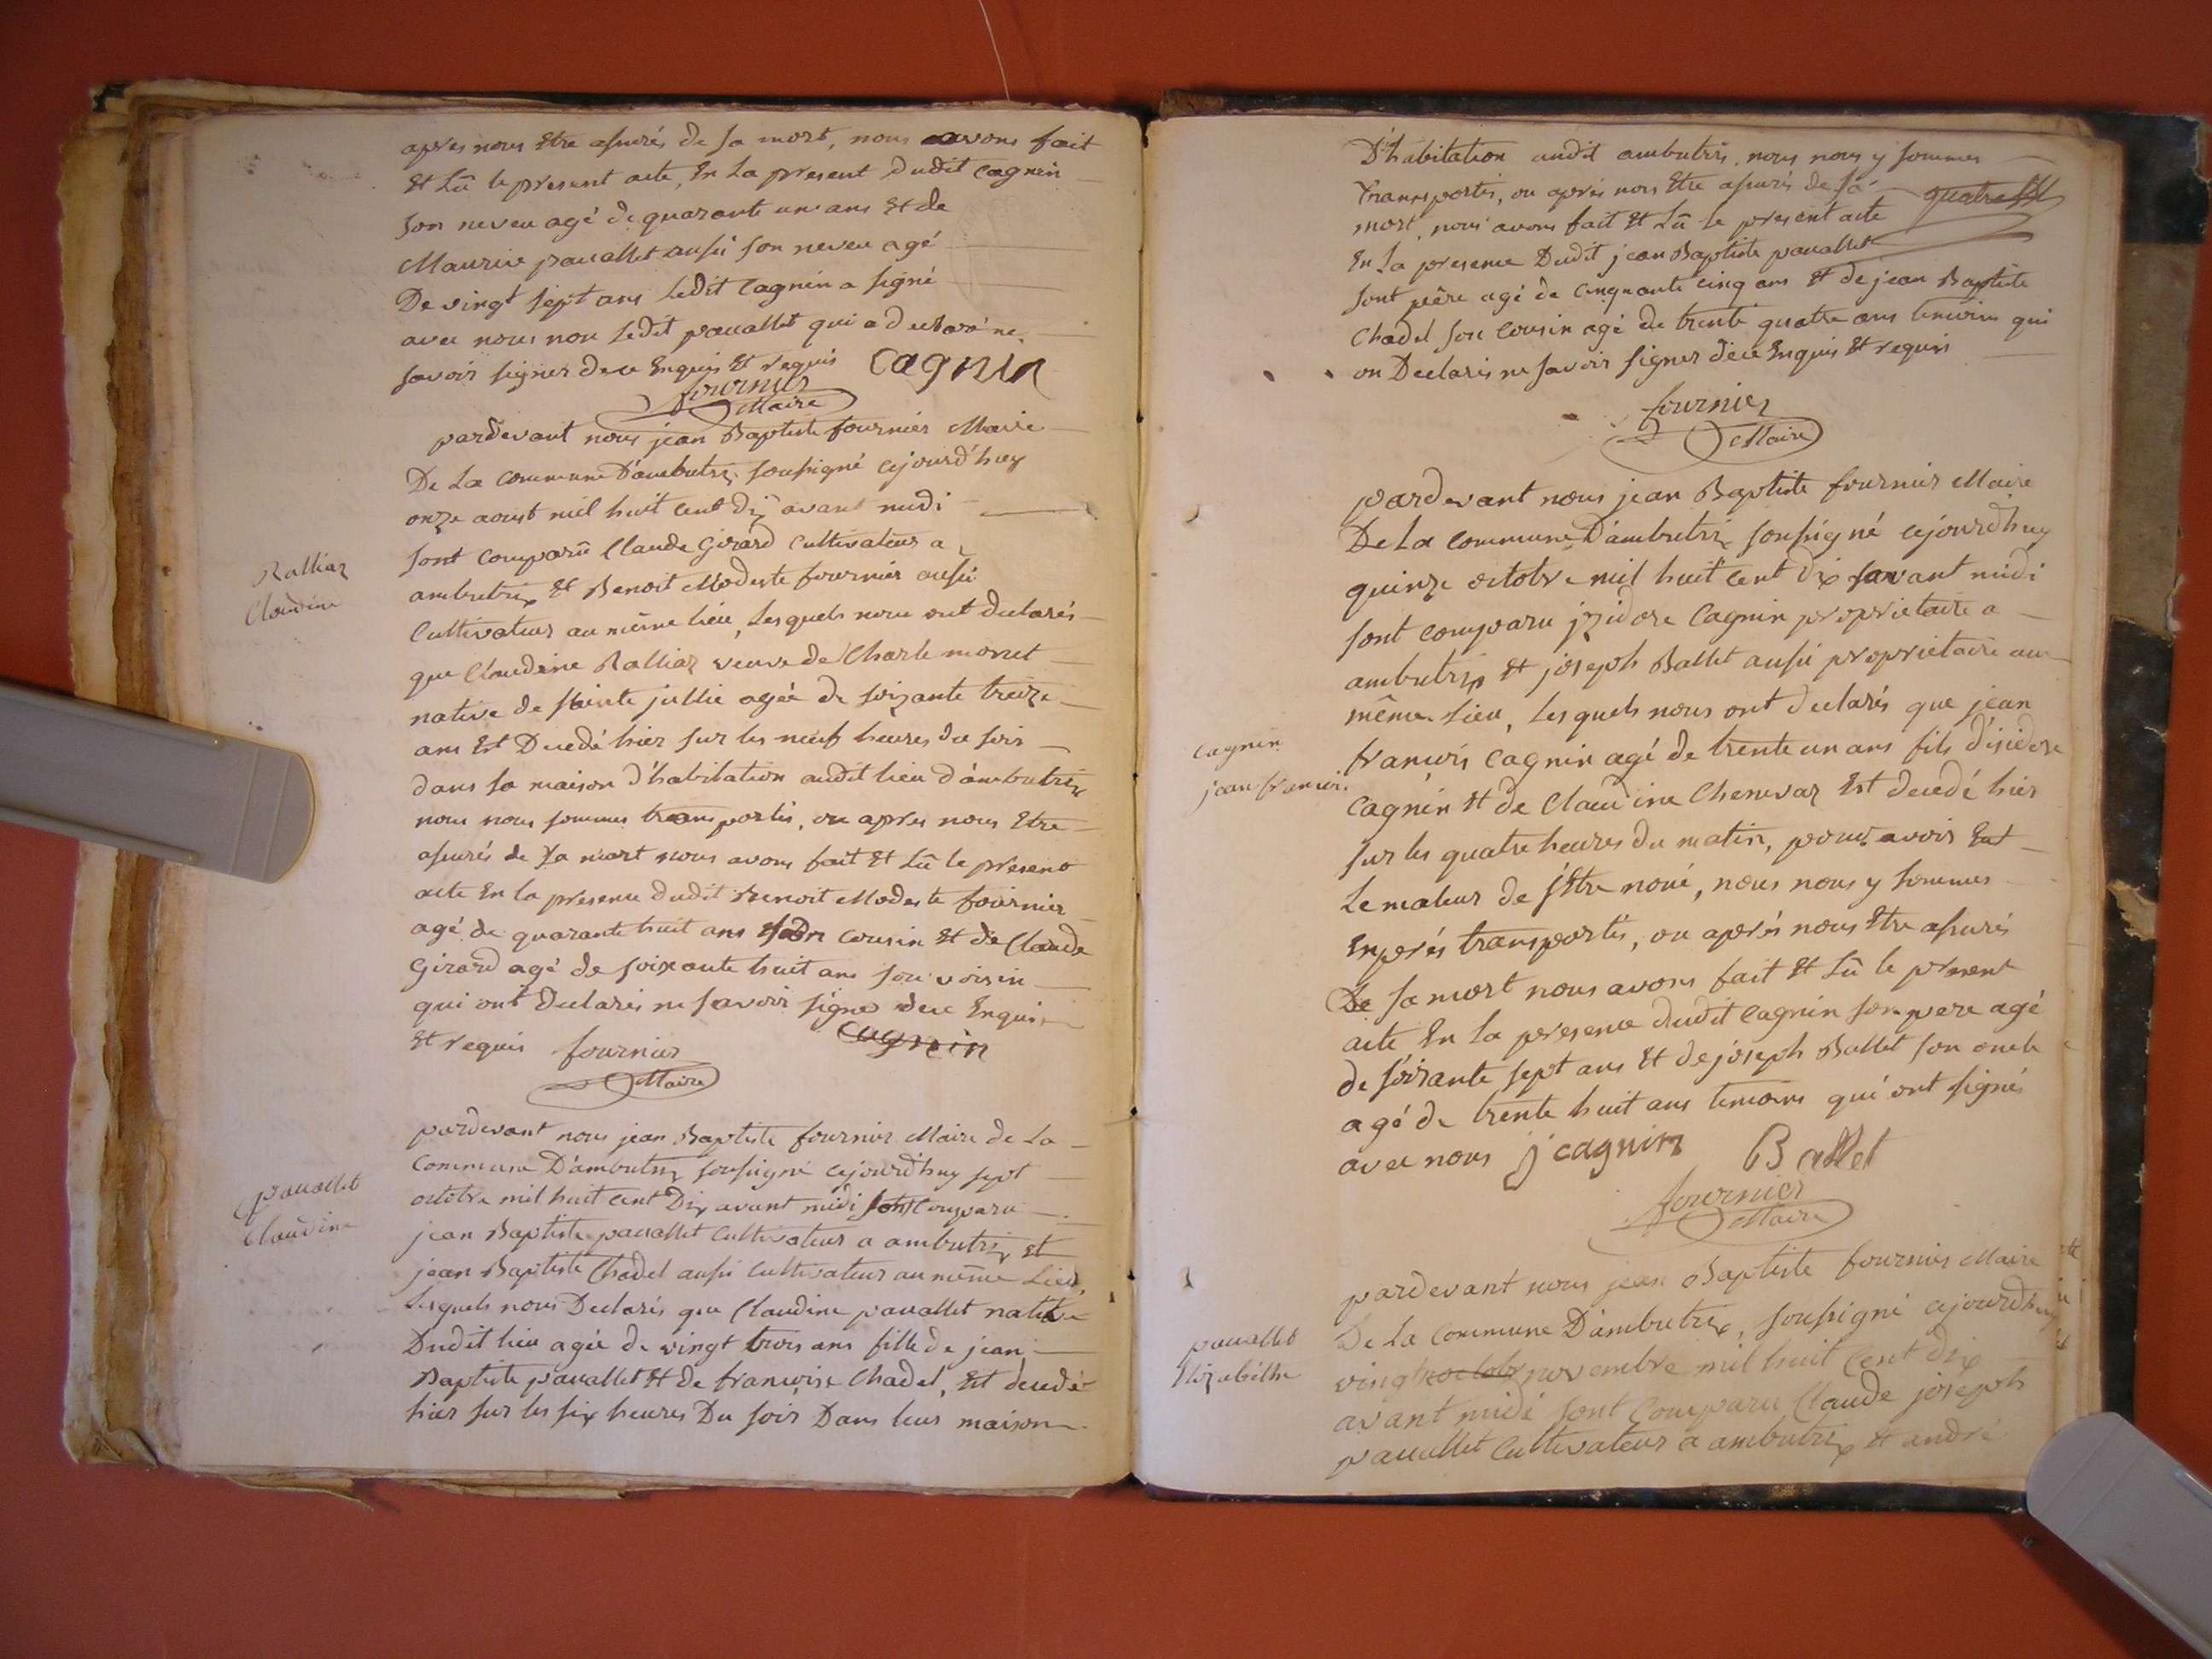 apres nous Etre assurés de sa mort, nous avons fait
Et Lû le present acte, En La present dudit Cagnin
son neveu agé de quarante un ans Et de
Maurice pauallet aussi son neveu agé
De vingt sept ans Ledit Cagnin a signé
avec nous non Ledit pauallet qui a declaré ne
savoir signer dece Enquis Et requis Cagnin
fournier
Maire
pardevant nous jean Baptiste fournier Maire
De La Commune D'ambutrix soussigné cejourd'huy
onze aoust mil huit cent dix avant midi
Ralliaz
Claudine
sont comparû Claude Girard Cultivateur a
ambutrix Et Benoit Modeste fournier aussi
Cultivateur au même lieu, Lesquels nous ont declarés
que Claudine Ralliaz veuve de Charle monet
native de sainte jullie agée de soizante treize
ans Est Decedé hier sur les neuf heures du soir
dans sa maison d'habitation audit lieu d'ambutrix
nous nous sommes transportés, ou apres nous Etre
assurés de sa mort nous avons fait Et Lû le present
acte En la presence dudit Benoit Modeste fournier
agé de quarante huit ans son cousin Et de Claude
Girard agé de soixante huit ans son voisin
qui ont declarés ne savoir signer dece Enquis
Et requis fournier Cagnin
Maire
pardevant nous jean Baptiste fournier Maire de La
Commune D'ambutrix soussigné cejourd'huy sept
pauallet
Claudine
octobre mil huit cent Dix avant midi sont Comparu
jean Baptiste pauallet Cultivateur a ambutrix Et
jean Baptiste Chadel aussi Cultivateur au même Lieu,
Lesquels nous Declarés que Claudine pauallet native
Dudit lieu agée de vingt trois ans fille de jean
Baptiste pauallet Et de françoise Chadel, Est decedé
hier sur les six heures Du soir Dans leur maison
D'habitation audit ambutrix, nous nous y sommes
transportés, ou aprés nous Etre assurés de sa
mort, nous avons fait Et Lû le present acte
En La presence Dudit jean Baptiste pauallet
sont pêre agé de Cinquante cinq ans Et de jean Baptiste
Chadel son Cousin agé de trente quatre ans temoins qui
on Declarés ne savoir signer dece Enquis Et requis
fournier
Maire
pardevant nous jean Baptiste fournier Maire
De La Commune D'ambutrix soussigné cejourd'huy
quinze octobre mil huit cent dix avant midi
sont comparu jzidore Cagnin proprietaire a
ambutrix Et joseph Ballet aussi proprietaire au
même Lieu, Lesquels nous ont declarés que jean
Cagnin
jean françois
françois Cagnin agé de trente un ans fils d'isidore
Cagnin Et de Claudine Chenevaz Est decedé hier
sur les quatre heures du matin, pour avoir Eut
Le maleur de s'Etre noué, nous nous y sommes
Exprés transportés, ou aprés nous Etre assurés
De sa mort nous avons fait Et Lû le present
acte En La presence dudit Cagnin son pere agé
de soixante sept ans Et de joseph Ballet son oncle
agé de trente huit ans temoins qui ont signés
avec nous j cagnin Ballet
fournier
Maire
pardevant nous jean Baptiste fournier Maire
De La Commune D'ambutrix, soussigné cejourd'huy
pauallet
Elizabethe
vingt octobre novembre mil huit Cent dix
avant midi sont Comparu Claude joseph
pauallet Cultivateur a ambutrix Et andré